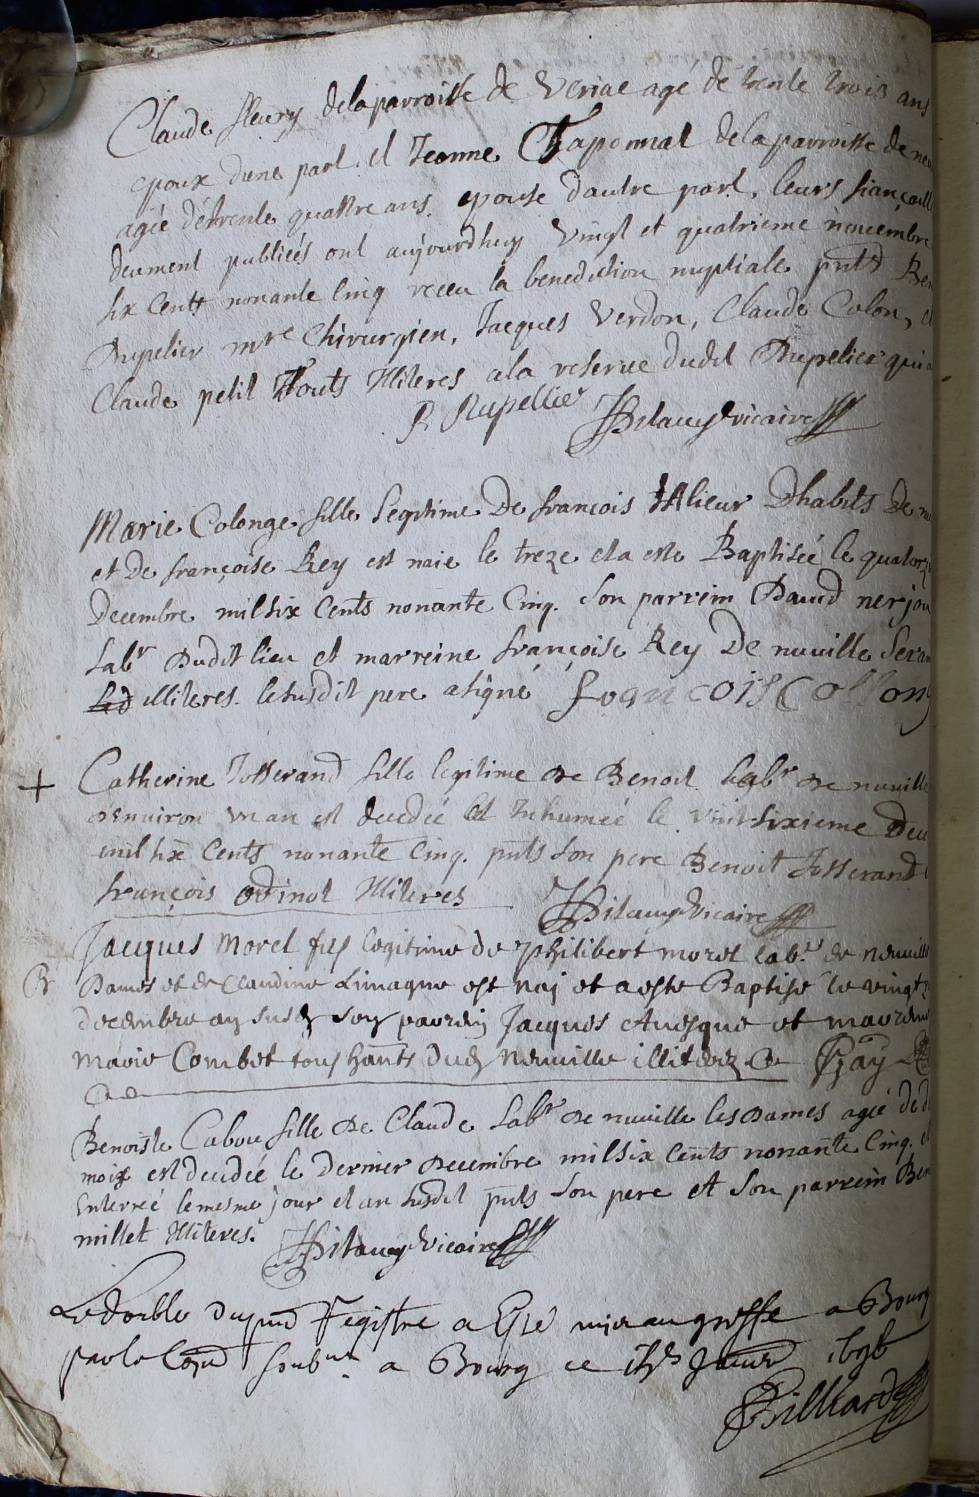 Claude fleury delaparroisse de Veriae age de trente trois ans
epoux dune part. et Jeanne Taponnat delaparroisse de neu
agée de trente quattre ans. epouse dautre part, leurs fiançaill
deument publieés ont aujourdhuy vingt et quatrieme novembre
six Cents nonante Cinq receu la benediction nuptiale pnts Ben
Dupelier mre Chirurgien, Jacques Verdon, Claude Colon, et
Claude petit Touts Illiteres ala reserve dudit Dupelier qui a
P. Rupellier Bilauy vicaire
Marie Colonge fille legitime De françois tallieur Dhabits De n
et De françoise Rey est naie le treze et a este Baptisée le quatorz
Decembre mil six Cents nonante Cinq. Son parrein David nerjou
Labr Dudit lieu et marreine françoise Rey De nuville Seran
illiteres. le susdit pere a signé francois Collong
+ Catherine Josserand fille legitime De Benoit Labr De nuville
denuiron un an est decedée et Inhumée le vint sixieme Dec
mil six Cents nonante Cinq. pnts Son pere Benoit Josserand
françois odinot Illiteres Bilauy Vicaire
Jacques Morel fils legitime de philibert morel labr de neuuille
B Dames et de Claudine Limagne est naj et a esté Baptisé le vingt
decembre an susd son parrein Jacques Auesque et marreine
marie Combet tous hants dud Neuuille illiterez
Benoiste Cabou fille De Claude Labr De nuville les Dames ageé de d
mois est decedée le Dernier Decembre mil six Cents nonante Cinq. et
Enterreé le mesme jour et an susdit pnts Son pere et Son parrein Ben
millet Illiteres. Bilauy Vicaire
Le double du pnt Registre a Esté mis au greffe a Bourg
par le a Bourg ce
Billiard